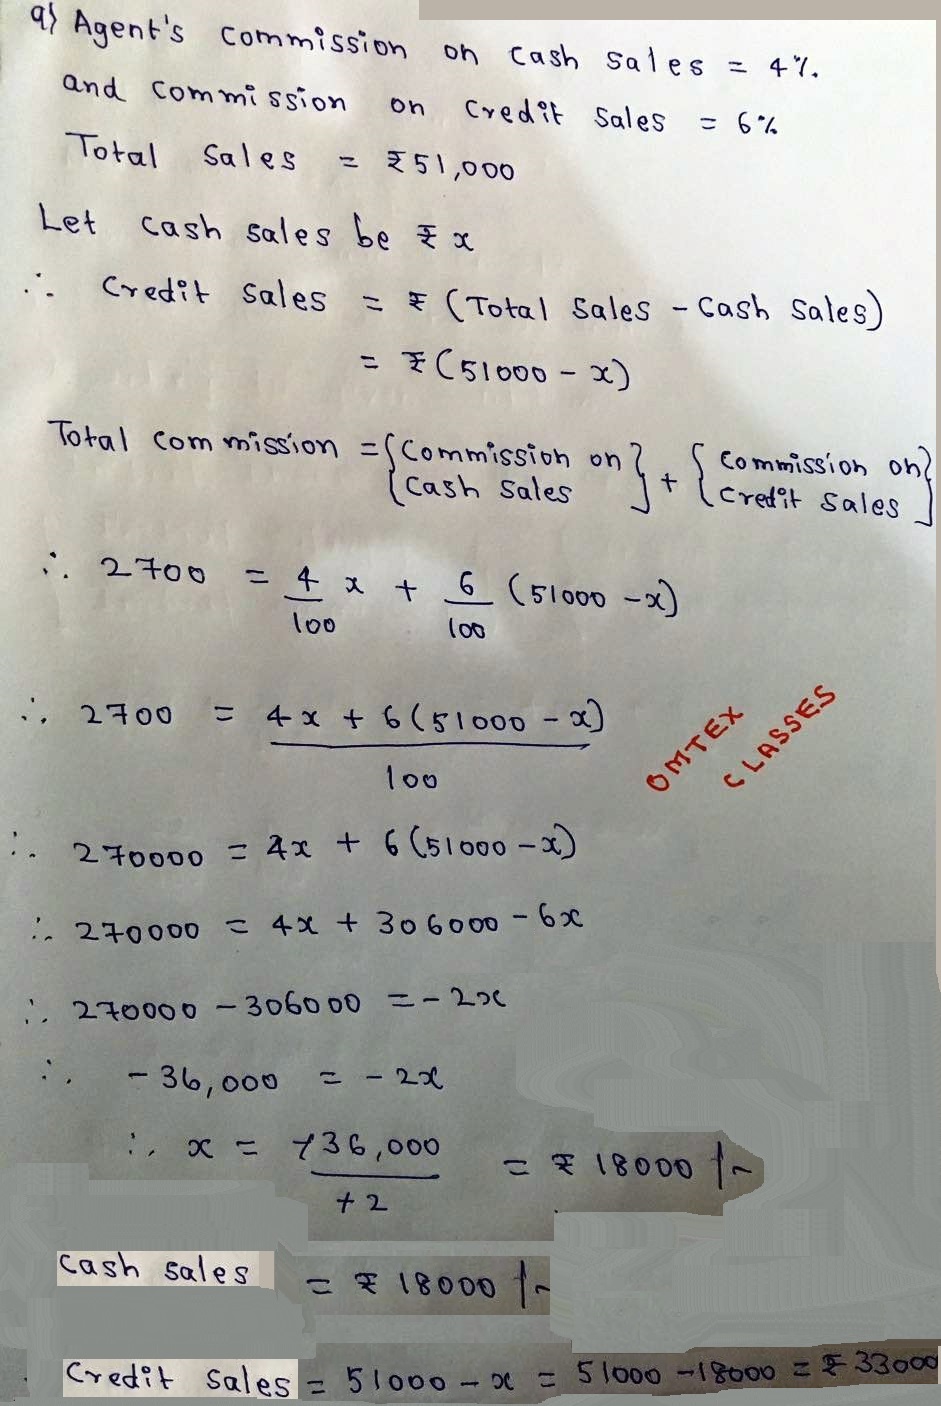 9) Agent's commission on cash sales = 4%.
and commission on credit sales = 6%
Total sales = ₹51,000
Let cash sales be ₹ x
∴ Credit sales = ₹ (Total sales - Cash sales)
= ₹ (51000 - x)
Total commission = {Commission on cash sales} + {commission on credit sales}
∴ 2700 = 4/100 x + 6/100 (51000 - x)
∴ 2700 = 4x + 6(51000 - x)
100
∴ 270000 = 4x + 6(51000 - x)
∴ 270000 = 4x + 306000 - 6x
∴ 270000 - 306000 = -2x
∴ -36,000 = -2x
∴ x = +36,000/+2 = ₹ 18000 /-
Cash sales = ₹ 18000 /-
Credit sales = 51000 - x = 51000 - 18000 = ₹ 33000
OMTEX
CLASSES